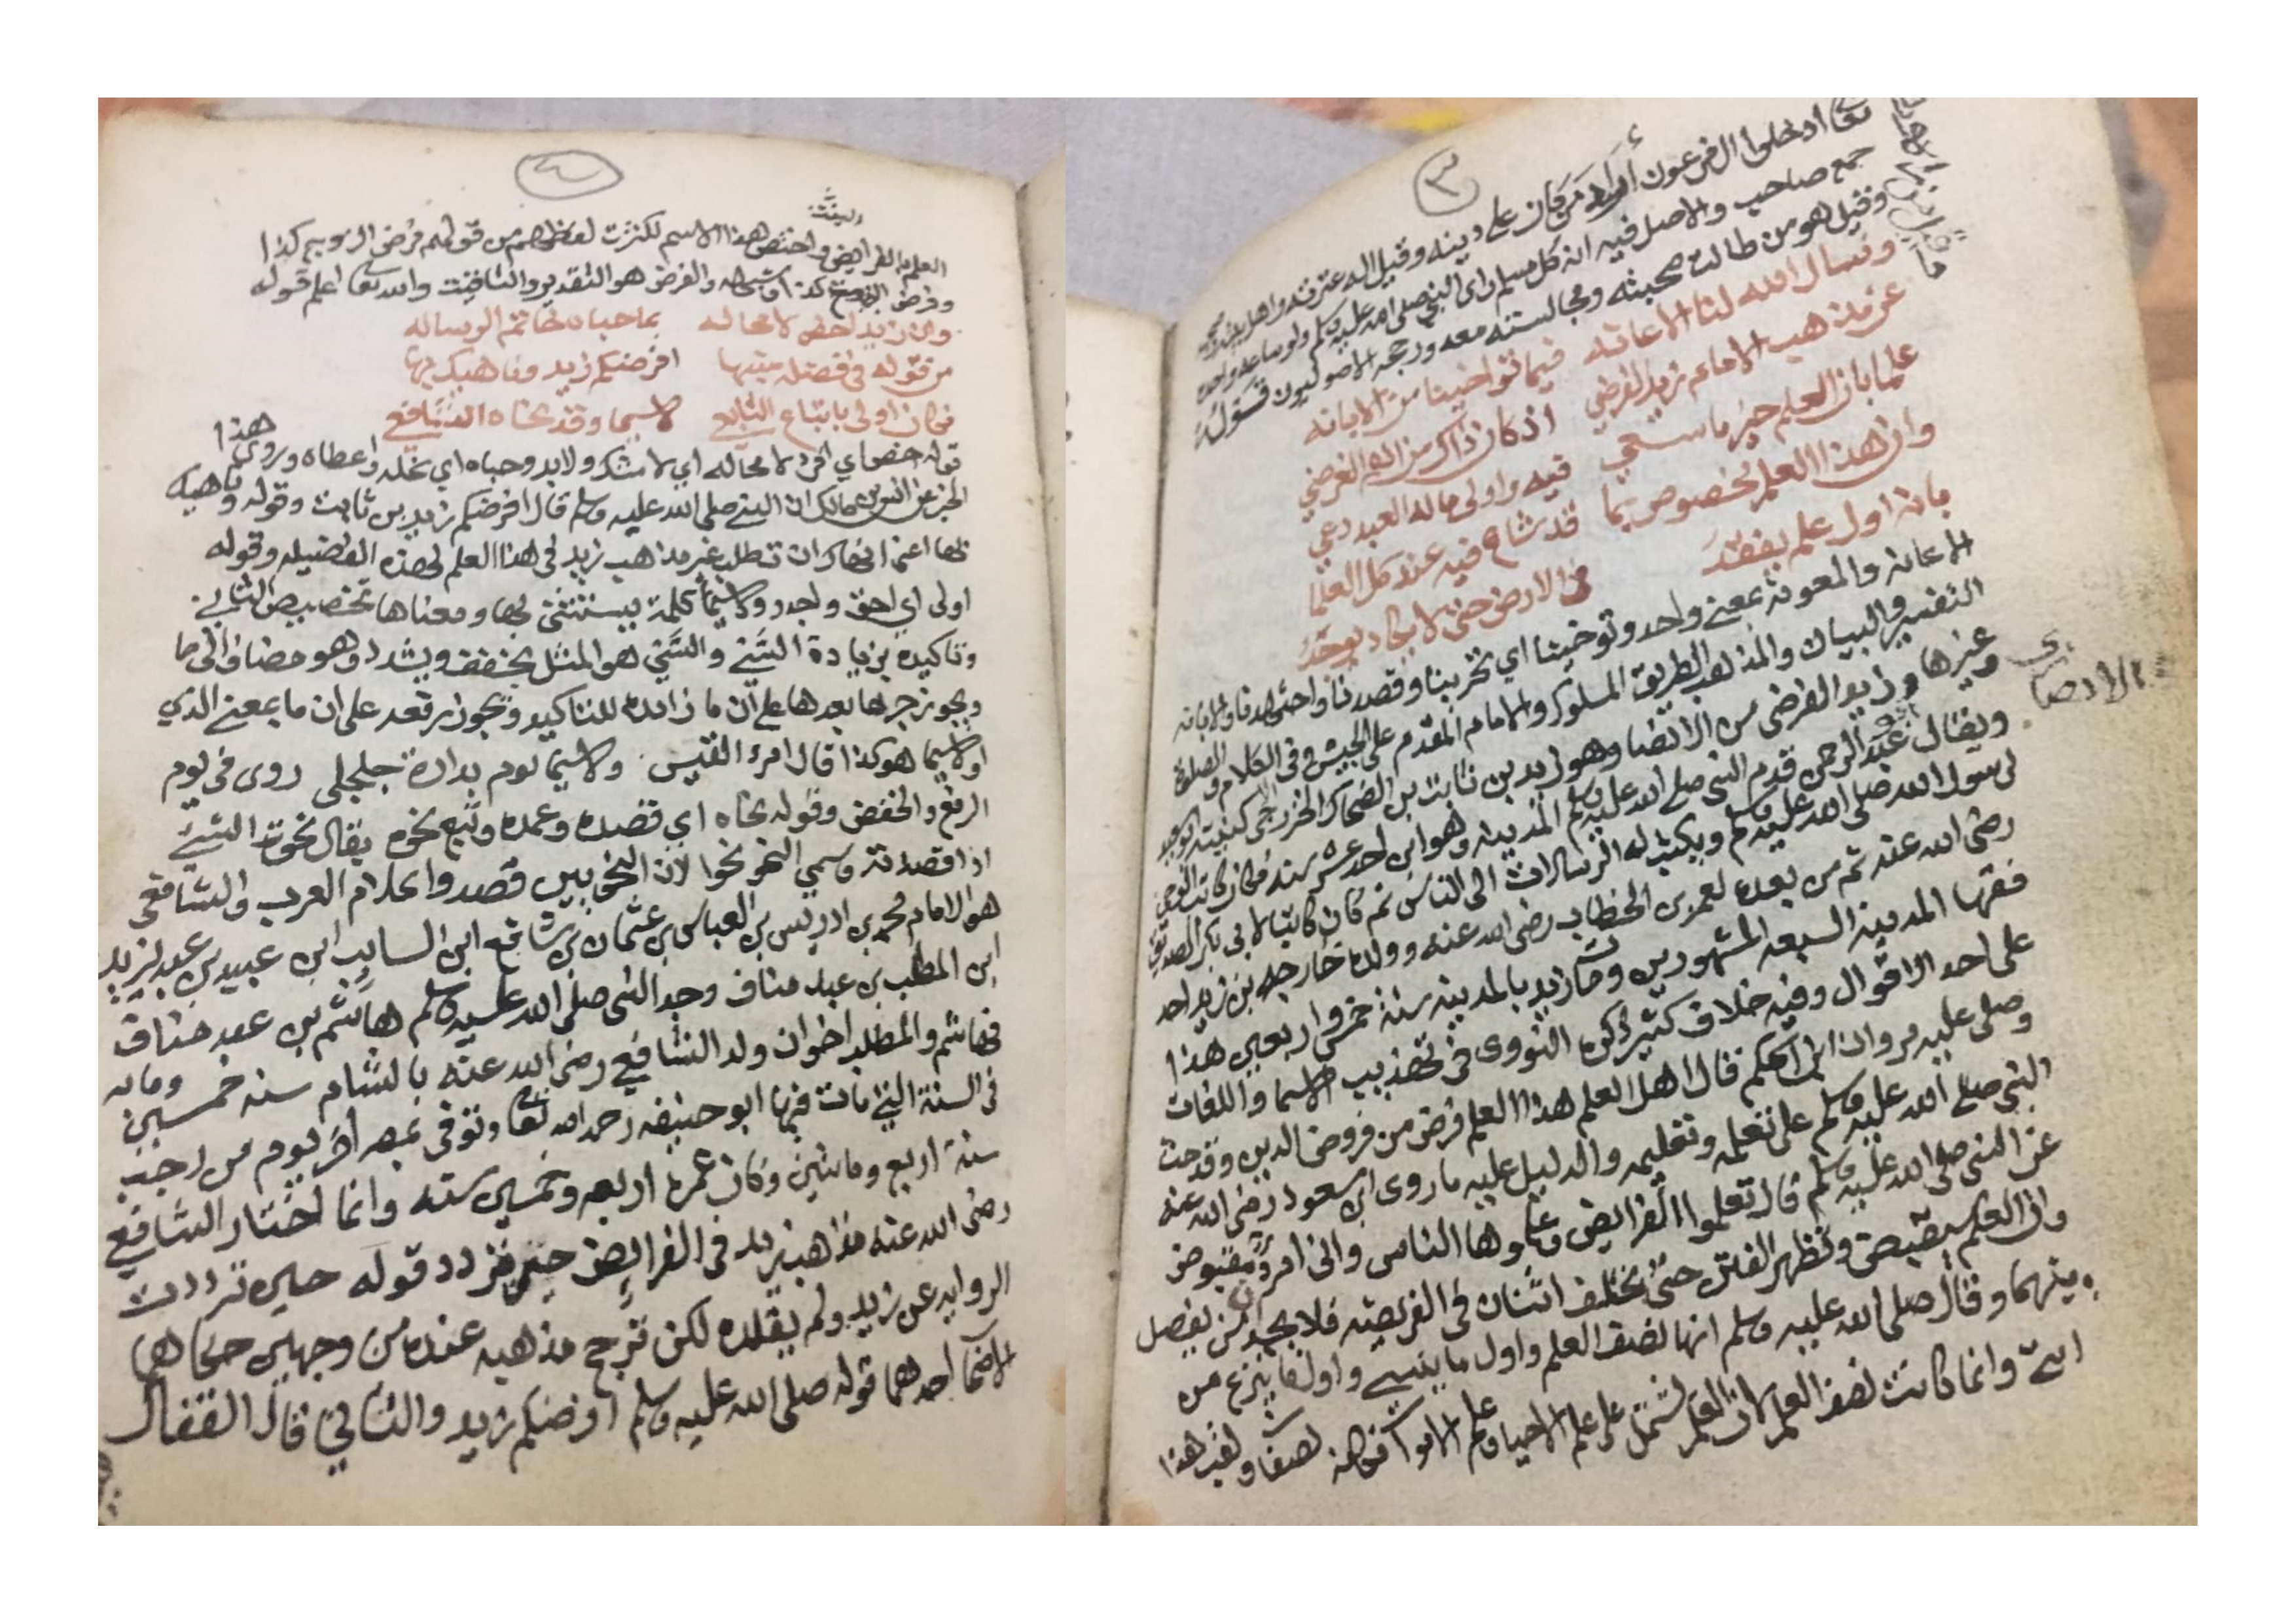 ٣
تعالى ادخلوا ال فرعون أراد من كان على دينه وقيل اله عترته واهل بيته وصحبه
جمع صاحب والاصل فيه ان كل مسلم راى النبي صلى الله عليه وسلم ولو ساعة واحدة
وقيل هو من طالت صحبته ومجالسته معه ورجحه الاصوليون قوله
ونسال الله لنا الاعانه فيما توخينا من الابانه
عن مذهب الامام زيد الفرضي اذ كان ذاك من اهم الغرض
علما بان العلم خير ما سعي فيه واولى ماله العبد دعي
وان هذا العلم مخصوص بما قد شاع فيه عند كل العلما
بانه اول علم يفقد في الارض حتى لا يكاد يوجد
الاعانة والمعونة بمعنى واحد وتوخينا اي تحرينا وقصدنا واجتهدنا والابانه
التفسير والبيان والمذهب الطريق المسلوك والامام المقدم على الجيش وفي الكلام والصلوة
وغيرها وزيد الفرضي من الانصار وهو زيد بن ثابت بن الضحاك الخزرجي كنيته ابو سعيد
الانصاري
ويقال عبد الرحمن قدم النبي صلى الله عليه وسلم المدينه وهو ابن احد عشر سنه فكان كاتب الوحي
لرسول الله صلى الله عليه وسلم ويكتب له الرسالات الى الناس ثم كان كاتبا لابي بكر الصديق
رضى الله عنه ثم من بعده لعمر بن الخطاب رضى الله عنه وولده خارجه بن زيد احد
فقها المدينة السبعه المشهورين ومات زيد بالمدينه سنة خمس واربعين هذا
على احد الاقوال وفيه خلاف كثير ذكره النووى في تهذيب الاسما واللغات
وصلى عليه مروان ابن الحكم قال اهل العلم هذا العلم فرض من فروض الدين وقد حث
النبي صلى الله عليه وسلم على تعلمه وتعليمه والدليل عليه ما روى ابن مسعود رضى الله عنه
عن النبي صلى الله عليه وسلم قال تعلموا الفرايض وعلموها الناس وانى امرؤ مقبوض
وان العلم سيقبض وتظهر الفتن حتى يختلف اثنان في الفريضه فلا يجدان من يفصل
بينهما وقال صلى الله عليه وسلم انها نصف العلم واول ما ينسى واول ما ينزع من
امتى وانما كانت نصف العلم لان العلم يشتمل على علم الاحيا وعلم الاموات فهى نصفا ولقب هذا
٤
العلم بالفرايض واختص هذا الاسم لكثرت لفظهم من قولهم فرض الزوج كذا
وفرض البنت كذا والفرض هو التقدير والله تعا اعلم قوله
وان زيدا خص لا محاله بما حباه خاتم الرساله
من قوله في فضله منبها افرضكم زيد وناهيك بها
فكان اولى باتباع التابع لا سيما وقد نحاه الشافعي
قوله خص اي افرد لا محاله اي لا شك ولا بد وحباه اي نحله واعطاه وروى هذا
الخبر عن انس بن مالك ان النبي صلى الله عليه وسلم قال افرضكم زيد بن ثابت وقوله وناهيك
بها اعنى انهاك ان تطلب غير مذهب زيد في هذا العلم لهذه الفضيله وقوله
اولى اي احق واجدر ولا سيما كلمة يستثنى بها ومعناها تخصيص الثاني
وتاكيده بزيادة الشي والسي هو المثل يخفف ويشدد وهو مضاف الى ما
ويجوز جر ما بعدها على ان ما زائده للتاكيد ويجوز رفعه على ان ما بمعنى الذي
اولا سيما هو كذا قال امرء القيس ولا سيما يوم بدارة جلجلى روى في يوم
الرفع والخفض وقوله نحاه اي قصده وعمده وتبع نحوه يقال نحوت الشي
اذا قصدته وسمي النحو نحوا لان النحويين قصدوا كلام العرب والشافعى
هو الامام محمد بن ادريس بن العباس بن عثمان بن شافع ابن السايب ابن عبيد بن عبد يزيد
ابن المطلب بن عبد مناف وجد النبي صلى الله عليه وسلم هاشم بن عبد مناف
فهاشم والمطلب اخوان ولد الشافعي رضى الله عنه بالشام سنه خمسين ومايه
في السنة التي مات فيها ابو حنيفه رحمه الله تعا وتوفى بمصر اخر يوم من رجب
سنة اربع ومائتين وكان عمره اربعه وخمسين سنه وانما اختار الشافعي
رضى الله عنه مذهب زيد في الفرايض حتى تردد قوله حين ترددت
الروايه عن زيد ولم يقلده لكن ترجح مذهبه عنده من وجهين حكاهما
احدهما قوله صلى الله عليه وسلم افرضكم زيد والثاني قال القفال